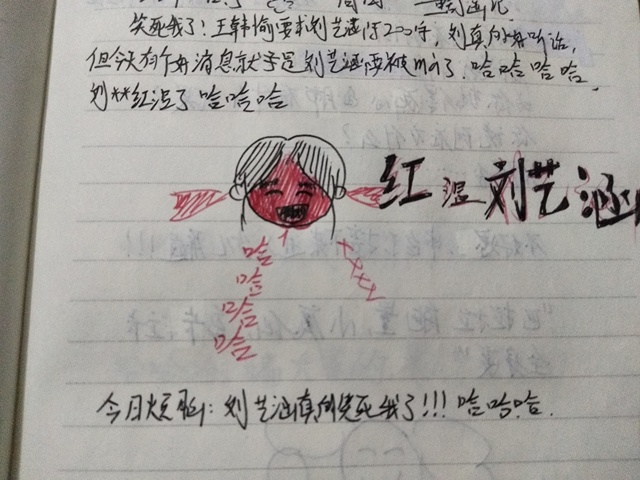 笑死我了！王韩愉要求刘艺涵仔200字，刘真的好听话，
但今天有个好消息就于是刘艺涵要被mā了，哈哈哈哈，
刘**红温了哈哈哈
红温刘艺涵
哈
哈
哈
哈
xxxx
今日大烦恼：刘艺涵真的笑死我了!!!哈哈哈.